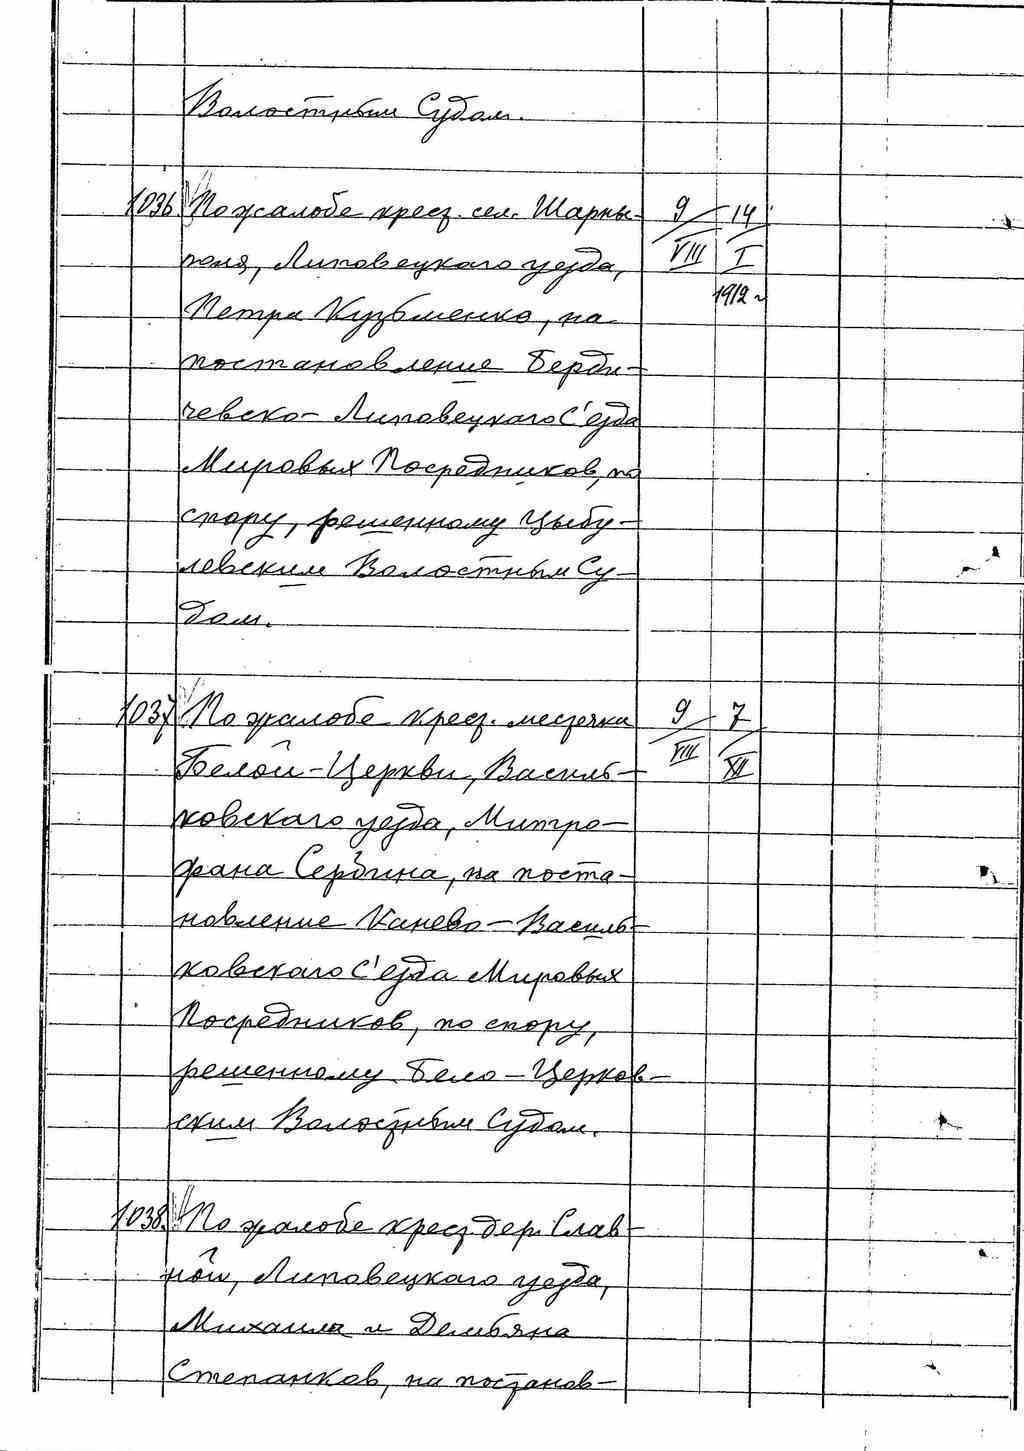 Волостным Судом.
1036 По жалобе крест. сел. Шарны- 9 14
поля, Липовецкаго уезда, VIII I
Петра Кузьменко, на 1912 г
постановление Берди-
чевско-Липовецкаго С'езда
Мировых Посредников, по
спору, решенному Цыбу-
левским Волостным Су-
дом.
1037 По жалобе крест. местечка 9 7
Белой-Церкви, Василь- VIII XII
ковскаго уезда, Митро-
фана Сербина, на поста-
новление Канево-Василь-
ковскаго С'езда Мировых
Посредников, по спору,
решенному Бело-Церков-
ским Волостным Судом.
1038. По жалобе крест. дер. Слав-
ной, Липовецкаго уезда,
Михаила и Демьяна
Степанков, на постанов-